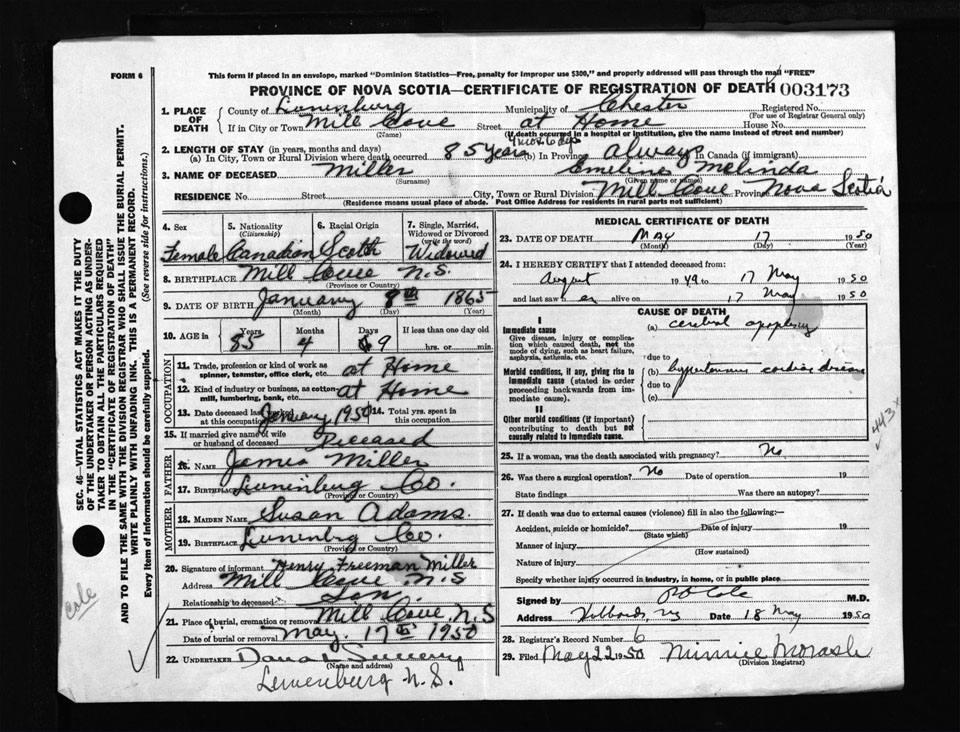 FORM 6
This form if placed in an envelope, marked "Dominion Statistics—Free, penalty for improper use $300," and properly addressed will pass through the mail "FREE"
PROVINCE OF NOVA SCOTIA—CERTIFICATE OF REGISTRATION OF DEATH 003173
1. PLACE OF DEATH County of Lunenburg Municipality of Chester Registered No.
(For use of Registrar General only)
If in City or Town Mill Cove Street at Home House No.
(Name) (If death occurred in a hospital or institution, give the name instead of street and number)
2. LENGTH OF STAY (in years, months and days) 4 mos. 6 dys
(a) In City, Town or Rural Division where death occurred 85 years (b) In Province Always In Canada (if immigrant)
3. NAME OF DECEASED Miller Emeline Melinda
(Surname) (Given name or names)
RESIDENCE No. Street City, Town or Rural Division Mill Cove Province Nova Scotia
(Residence means usual place of abode. Post Office Address for residents in rural parts not sufficient)
4. Sex 5. Nationality (Citizenship) 6. Racial Origin 7. Single, Married, Widowed or Divorced (write the word)
Female Canadian Scotch Widowed
8. BIRTHPLACE Mill Cove N.S.
(Province or Country)
9. DATE OF BIRTH January 8th 1865
(Month) (Day) (Year)
10. AGE in Years Months Days If less than one day old
85 4 9 hrs. or min.
OCCUPATION
11. Trade, profession or kind of work as spinner, teamster, office clerk, etc. at Home
12. Kind of industry or business, as cotton mill, lumbering, bank, etc. at Home
13. Date deceased last worked at this occupation January 1950 14. Total yrs. spent in this occupation
15. If married give name of wife or husband of deceased Deceased
FATHER
16. NAME James Miller
17. BIRTHPLACE Lunenburg Co.
(Province or Country)
MOTHER
18. MAIDEN NAME Susan Adams.
19. BIRTHPLACE Lunenbrg Co.
(Province or Country)
20. Signature of informant Henry Freeman Miller
Address Mill Cove N.S
Relationship to deceased Son.
21. Place of burial, cremation or removal Mill Cove N.S
Date of burial or removal May. 17th 1950
22. UNDERTAKER
(Name and address)
Lunenburg N.S.
MEDICAL CERTIFICATE OF DEATH
23. DATE OF DEATH May 17 1950
(Month) (Day) (Year)
24. I HEREBY CERTIFY that I attended deceased from:
August 1949 17 May 1950
and last saw er alive on 17 May 1950
CAUSE OF DEATH
I
Immediate cause (a) cerebral apoplexy
Give disease, injury or complication which caused death, not the mode of dying, such as heart failure, asphyxia, asthenia, etc.
due to
Morbid conditions, if any, giving rise to immediate cause (stated in order proceeding backwards from immediate cause).
(b)
due to
(c)
II
Other morbid conditions (if important) contributing to death but not causally related to immediate cause.
443x
25. If a woman, was the death associated with pregnancy? No
26. Was there a surgical operation? No Date of operation 19
State findings Was there an autopsy?
27. If death was due to external causes (violence) fill in also the following:—
Accident, suicide or homicide? Date of injury 19
(State which)
Manner of injury
(How sustained)
Nature of injury
Specify whether injury occurred in industry, in home, or in public place
Signed by Cole M.D.
Address Hubbards, NS Date 18 May 1950
28. Registrar's Record Number 6
29. Filed May 22 1950 Minnie Morash
(Division Registrar)
SEC. 46—VITAL STATISTICS ACT MAKES IT THE DUTY
OF THE UNDERTAKER OR PERSON ACTING AS UNDER-
TAKER TO OBTAIN ALL THE PARTICULARS REQUIRED
IN THE "CERTIFICATE OF REGISTRATION OF DEATH"
AND TO FILE THE SAME WITH THE DIVISION REGISTRAR WHO SHALL ISSUE THE BURIAL PERMIT.
WRITE PLAINLY WITH UNFADING INK. THIS IS A PERMANENT RECORD.
Every item of information should be carefully supplied. (See reverse side for instructions.)
Cole